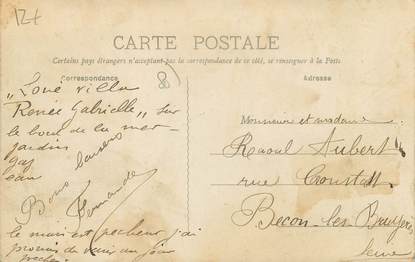 12t
CARTE POSTALE
Certains pays étrangers n'acceptant pas la correspondance de ce côté, se renseigner à la Poste
Correspondance
Adresse
8)
"Loué villa
Renée Gabrielle" sur
le bord de la mer
jardin
gaz
eau
Bons baisers
Fernande
le mari est pecheur j'ai
promis de venir un jour
Monsieur et madame
Raoul Aubert
rue
Becon-les-Bruyères
Seine